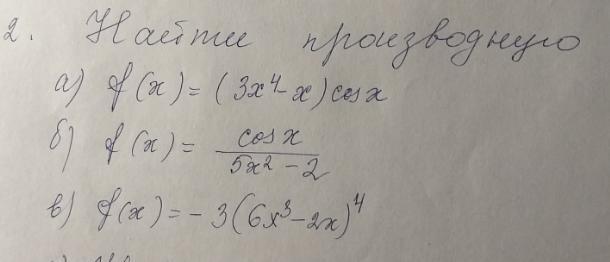 2. Найти производную
а) f(x) = (3x⁴ - x) cos x
б) f(x) = cos x / (5x² - 2)
в) f(x) = - 3(6x³ - 2x)⁴